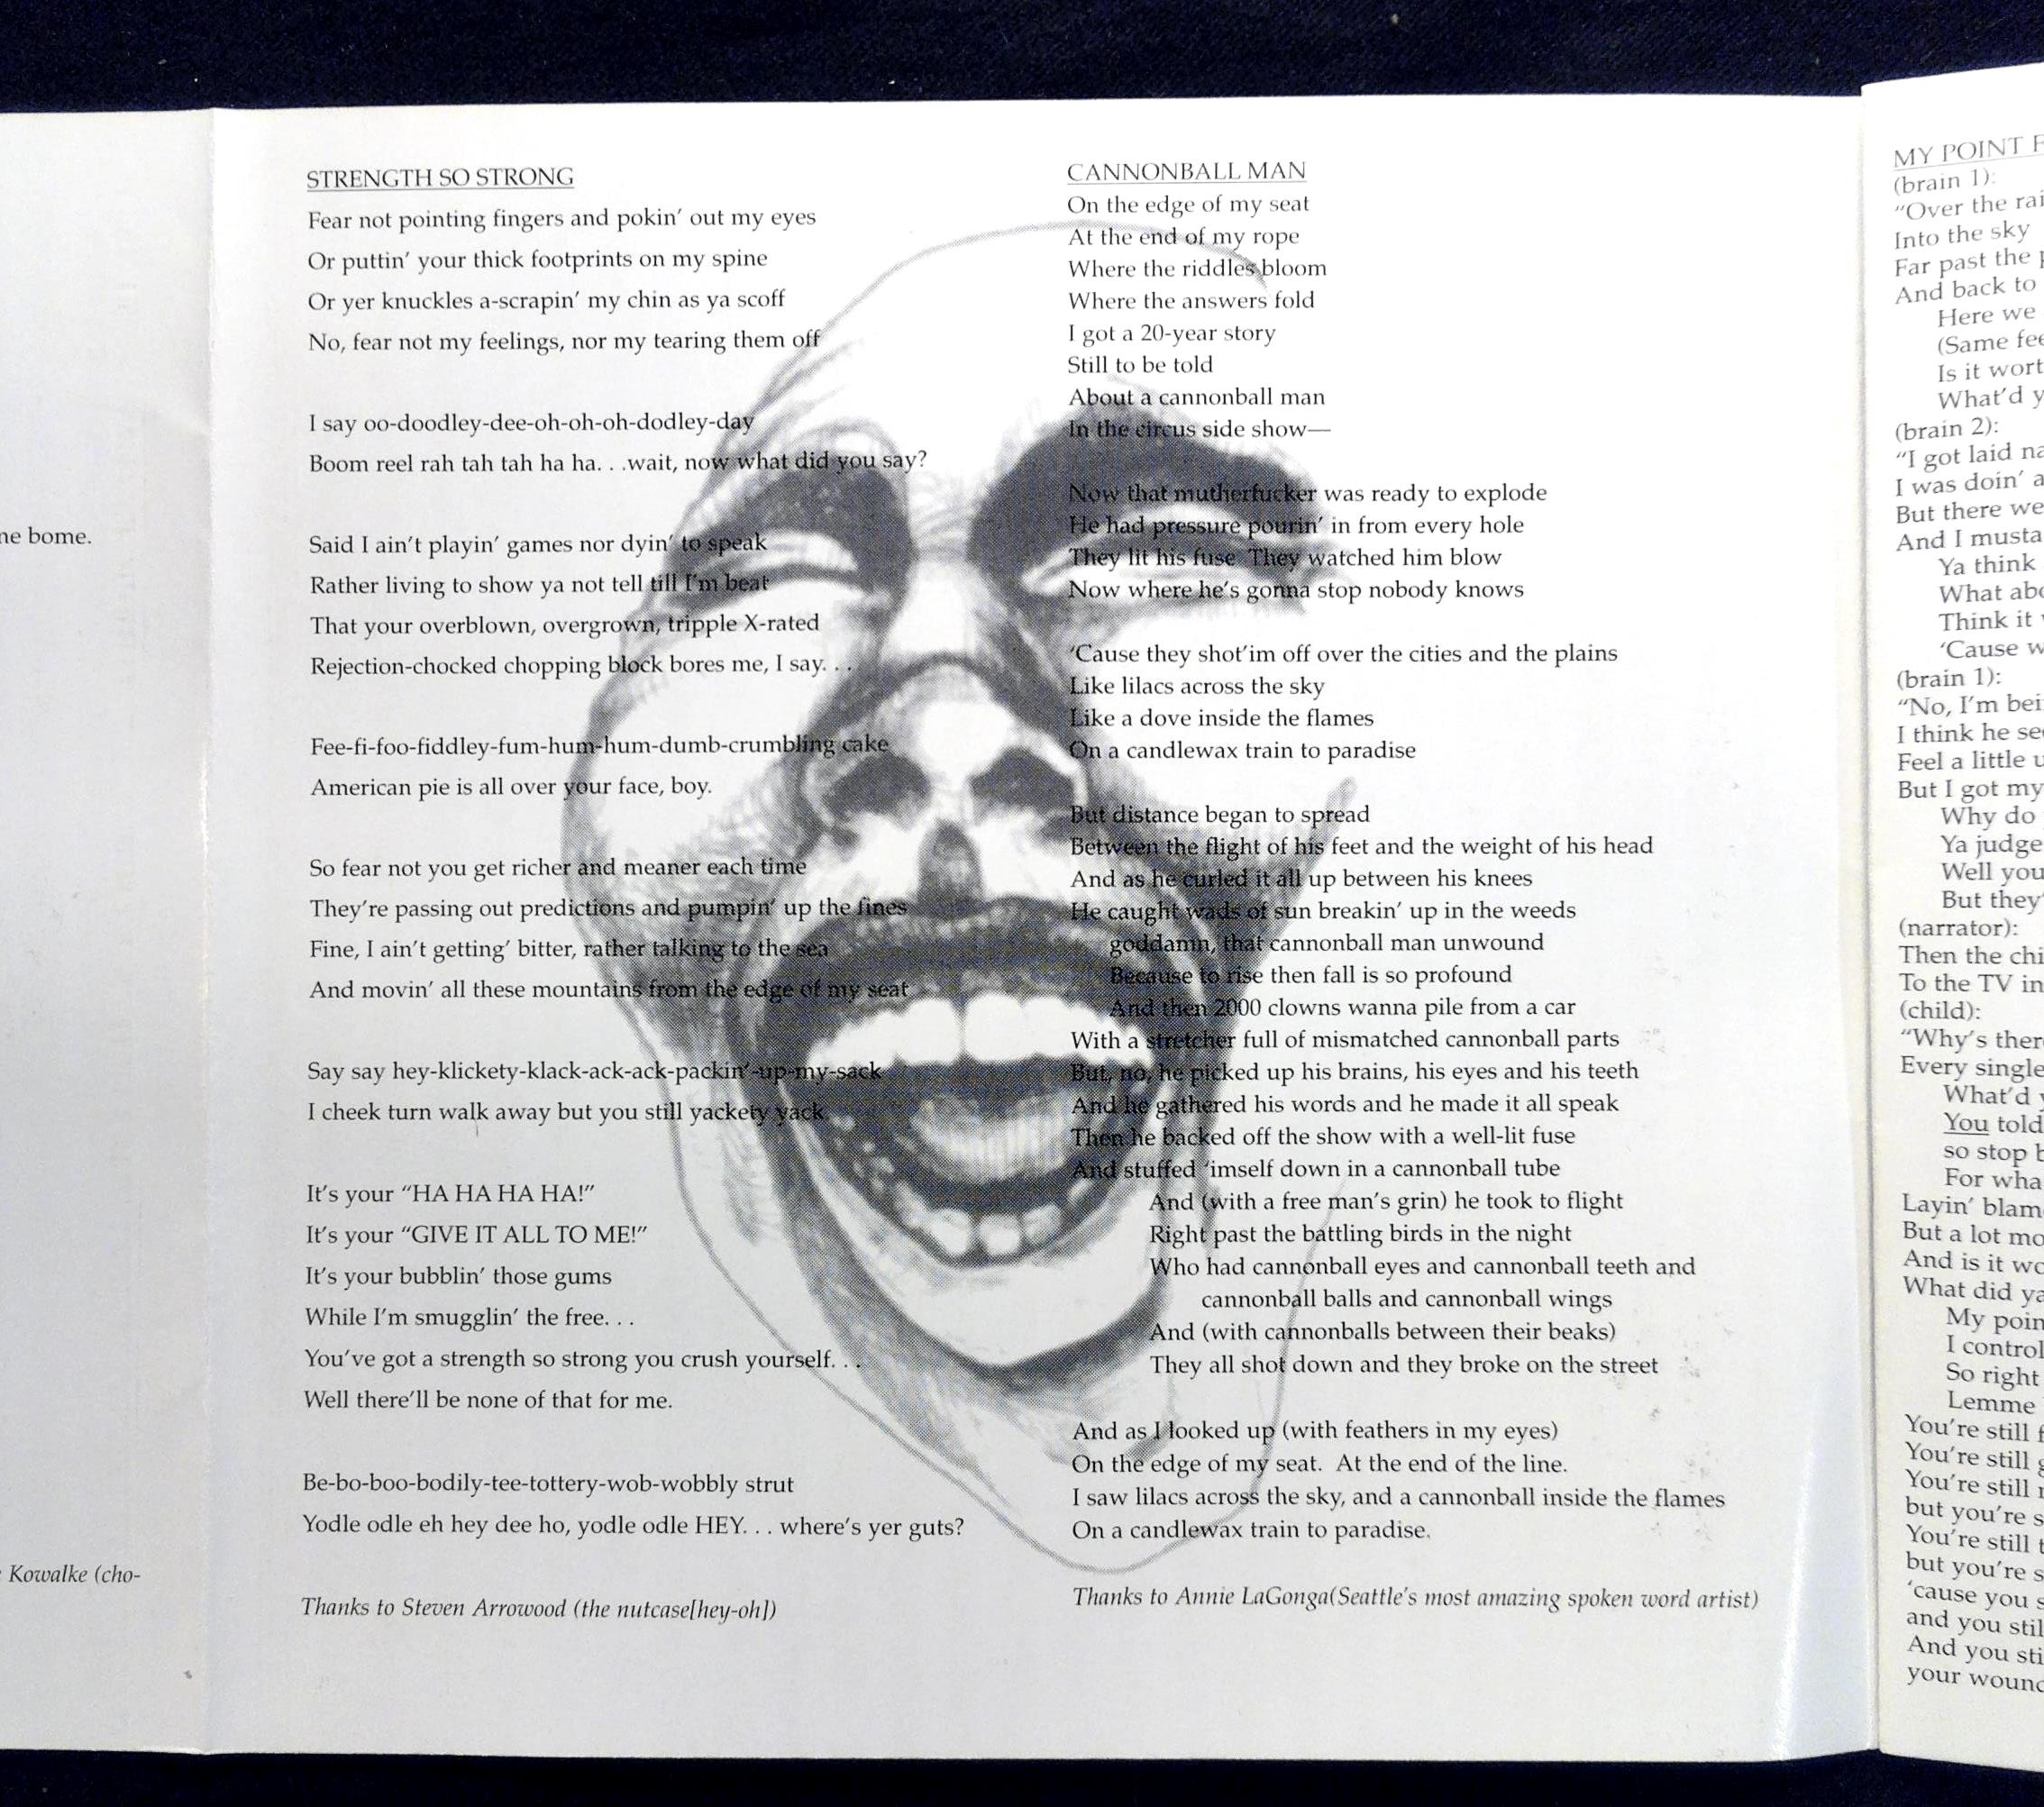 ne bome.
Kowalke (cho-
STRENGTH SO STRONG
Fear not pointing fingers and pokin' out my eyes
Or puttin' your thick footprints on my spine
Or yer knuckles a-scrapin' my chin as ya scoff
No, fear not my feelings, nor my tearing them off
I say oo-doodley-dee-oh-oh-oh-dodley-day
Boom reel rah tah tah ha ha. . .wait, now what did you say?
Said I ain't playin' games nor dyin' to speak
Rather living to show ya not tell till I'm beat
That your overblown, overgrown, tripple X-rated
Rejection-chocked chopping block bores me, I say. . .
Fee-fi-foo-fiddley-fum-hum-hum-dumb-crumbling cake
American pie is all over your face, boy.
So fear not you get richer and meaner each time
They're passing out predictions and pumpin' up the fines
Fine, I ain't getting' bitter, rather talking to the sea
And movin' all these mountains from the edge of my seat
Say say hey-klickety-klack-ack-ack-packin'-up-my-sack
I cheek turn walk away but you still yackety yack
It's your "HA HA HA HA!"
It's your "GIVE IT ALL TO ME!"
It's your bubblin' those gums
While I'm smugglin' the free. . .
You've got a strength so strong you crush yourself. . .
Well there'll be none of that for me.
Be-bo-boo-bodily-tee-tottery-wob-wobbly strut
Yodle odle eh hey dee ho, yodle odle HEY. . . where's yer guts?
Thanks to Steven Arrowood (the nutcase[hey-oh])
CANNONBALL MAN
On the edge of my seat
At the end of my rope
Where the riddles bloom
Where the answers fold
I got a 20-year story
Still to be told
About a cannonball man
In the circus side show—
Now that mutherfucker was ready to explode
He had pressure pourin' in from every hole
They lit his fuse They watched him blow
Now where he's gonna stop nobody knows
'Cause they shot'im off over the cities and the plains
Like lilacs across the sky
Like a dove inside the flames
On a candlewax train to paradise
But distance began to spread
Between the flight of his feet and the weight of his head
And as he curled it all up between his knees
He caught wads of sun breakin' up in the weeds
goddamn, that cannonball man unwound
Because to rise then fall is so profound
And then 2000 clowns wanna pile from a car
With a stretcher full of mismatched cannonball parts
But, no, he picked up his brains, his eyes and his teeth
And he gathered his words and he made it all speak
Then he backed off the show with a well-lit fuse
And stuffed 'imself down in a cannonball tube
And (with a free man's grin) he took to flight
Right past the battling birds in the night
Who had cannonball eyes and cannonball teeth and
cannonball balls and cannonball wings
And (with cannonballs between their beaks)
They all shot down and they broke on the street
And as I looked up (with feathers in my eyes)
On the edge of my seat. At the end of the line.
I saw lilacs across the sky, and a cannonball inside the flames
On a candlewax train to paradise.
Thanks to Annie LaGonga(Seattle's most amazing spoken word artist)
MY POINT
(brain 1):
"Over the
Into the sky
Far past the
And back to
Here we
(Same
Is it
What'd
(brain 2):
"I got laid
I was doin'
But there
And I
Ya think
What
Think it
'Cause
(brain 1):
"No, I'm
I think he
Feel a little
But I got my
Why do
Ya judge
Well you
But
(narrator):
Then the
To the TV in
(child):
"Why's
Every single
What'd
You told
so stop
For
Layin'
But a lot
And is it
What did
My
I
So right
Lemme
You're still
You're still
You're still
but
You're still
but
'cause you
and you
And you
your